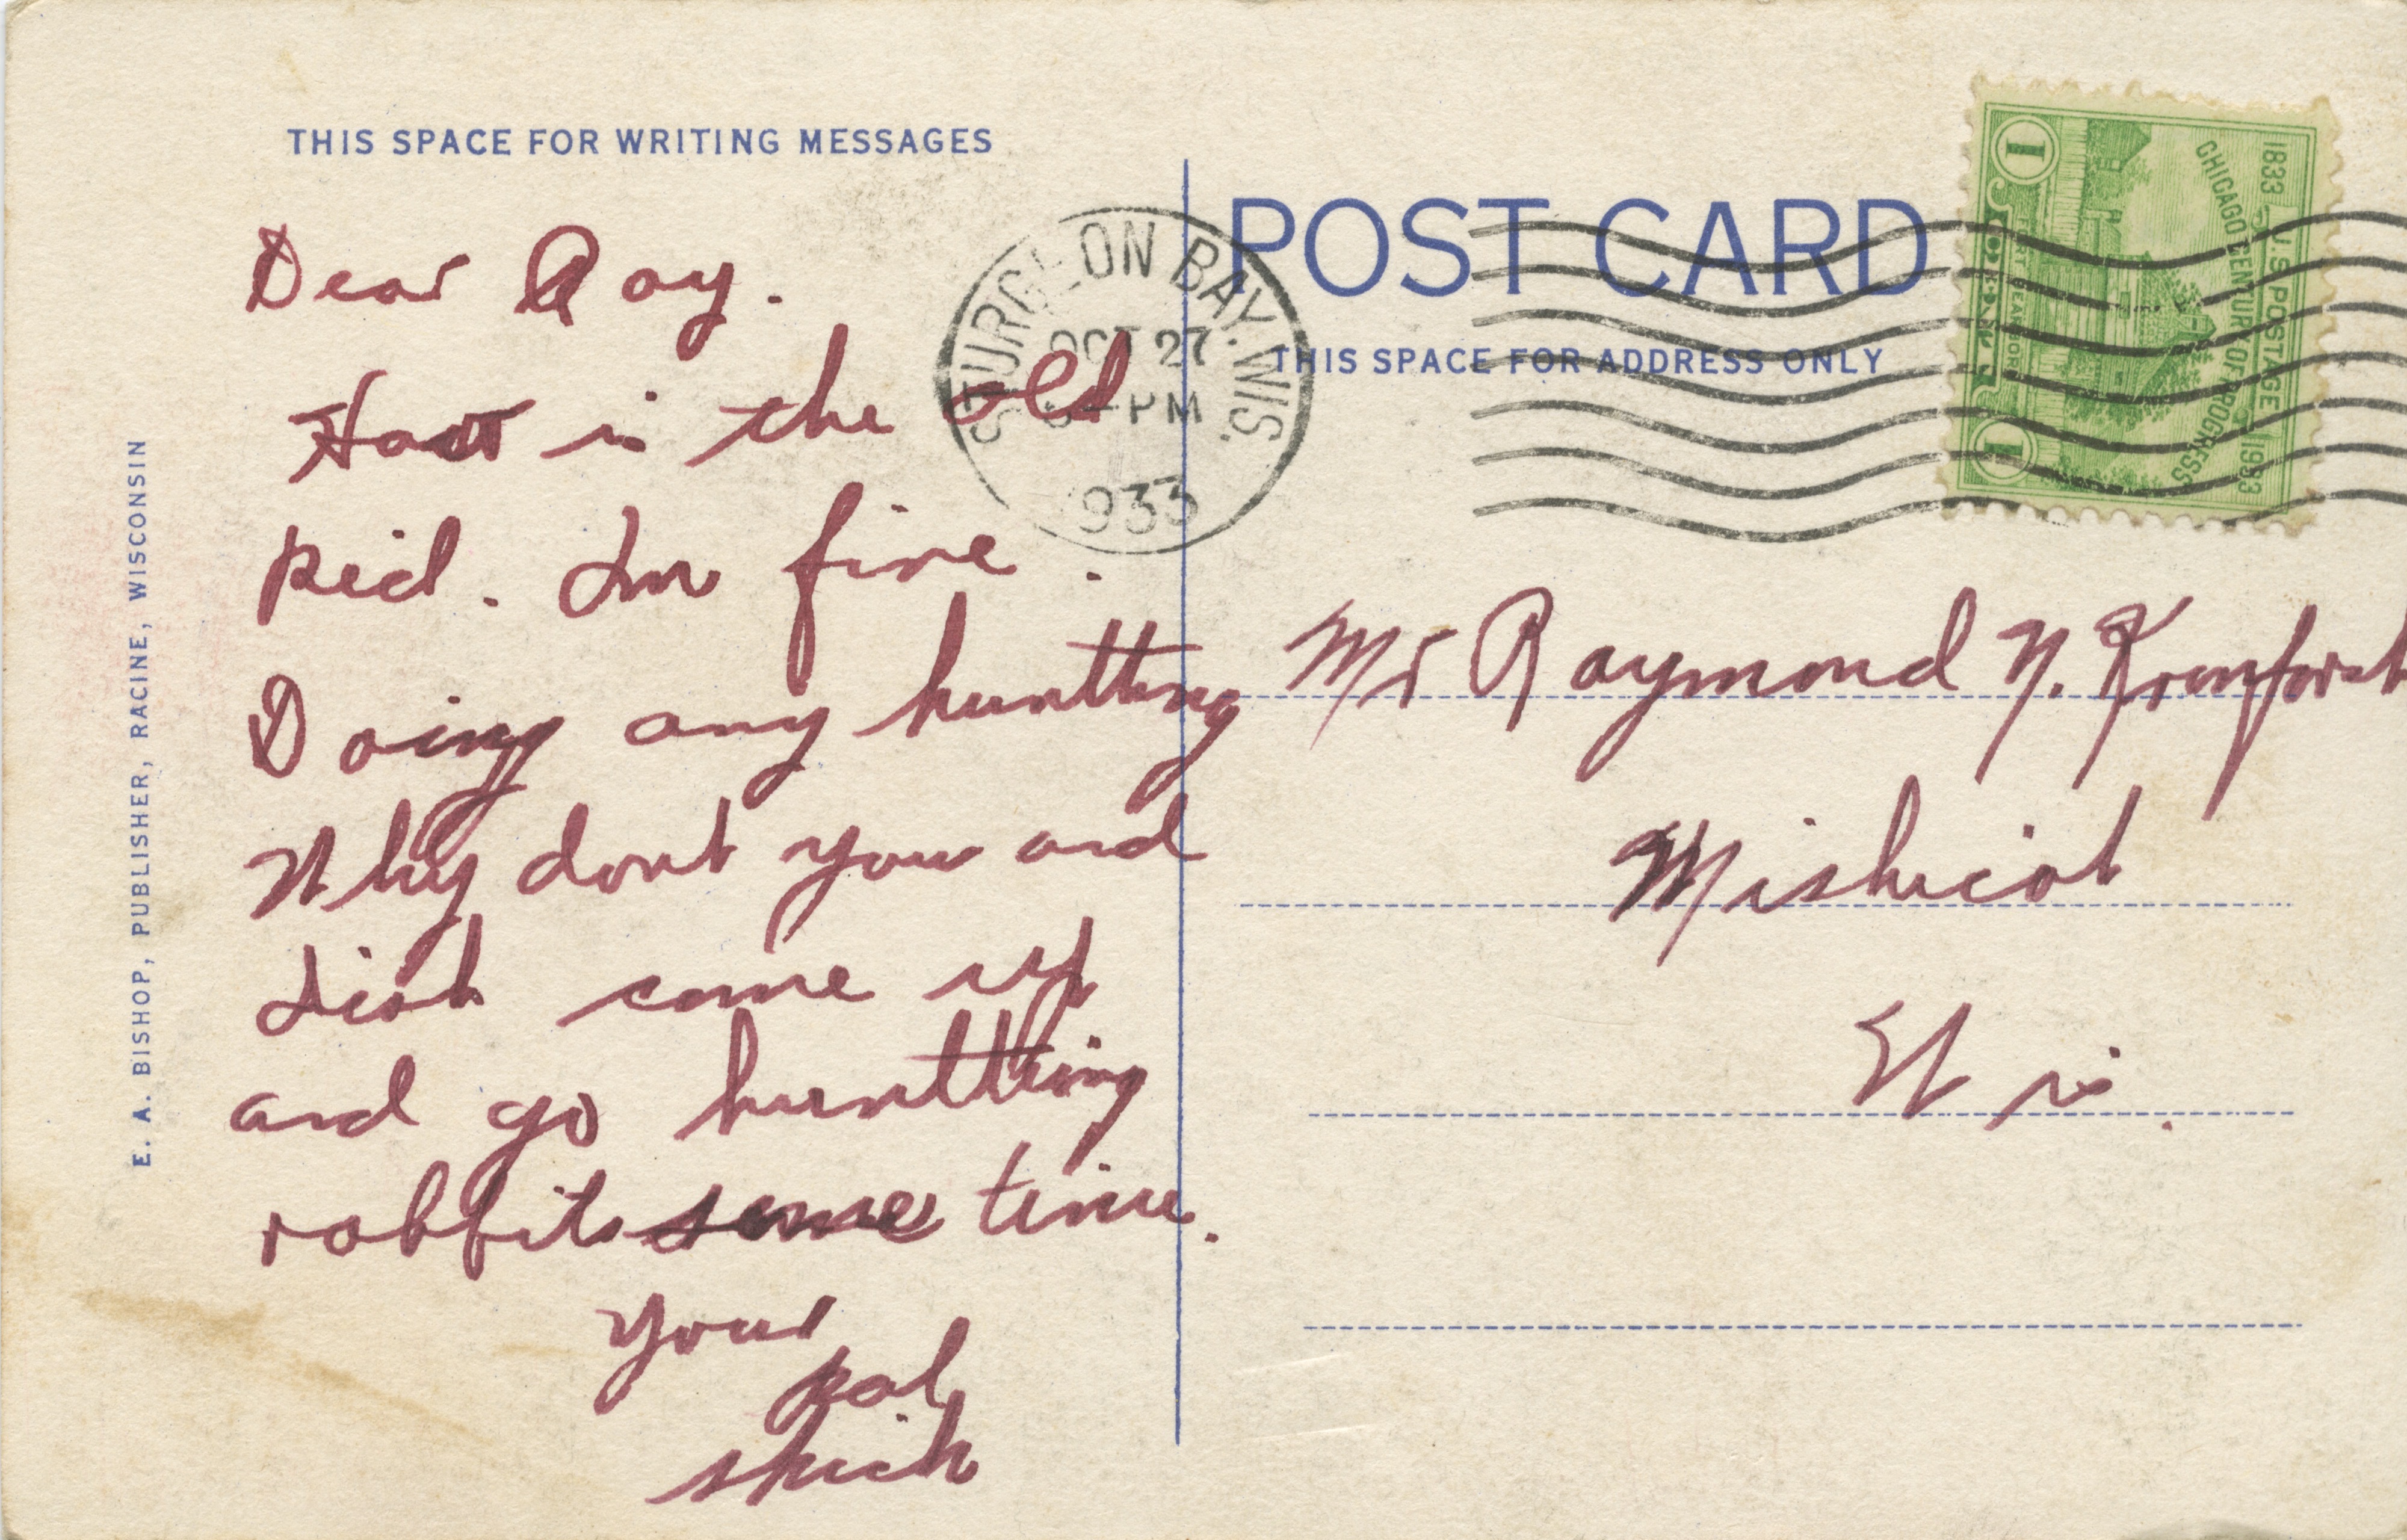 THIS SPACE FOR WRITING MESSAGES
Dear Ray.
is the old
kid. Im fine.
Doing any huntting
Why dont you and
come up
and go huntting
rabbits some time.
Your
pal
E. A. BISHOP, PUBLISHER, RACINE, WISCONSIN
STURGEON BAY. WIS.
OCT 27
PM
1933
POST CARD
THIS SPACE FOR ADDRESS ONLY
1833 U.S. POSTAGE 1933
CHICAGO CENTURY OF PROGRESS
FORT DEARBORN
1
1
Mr Raymond N.
Mishicot
Wis.